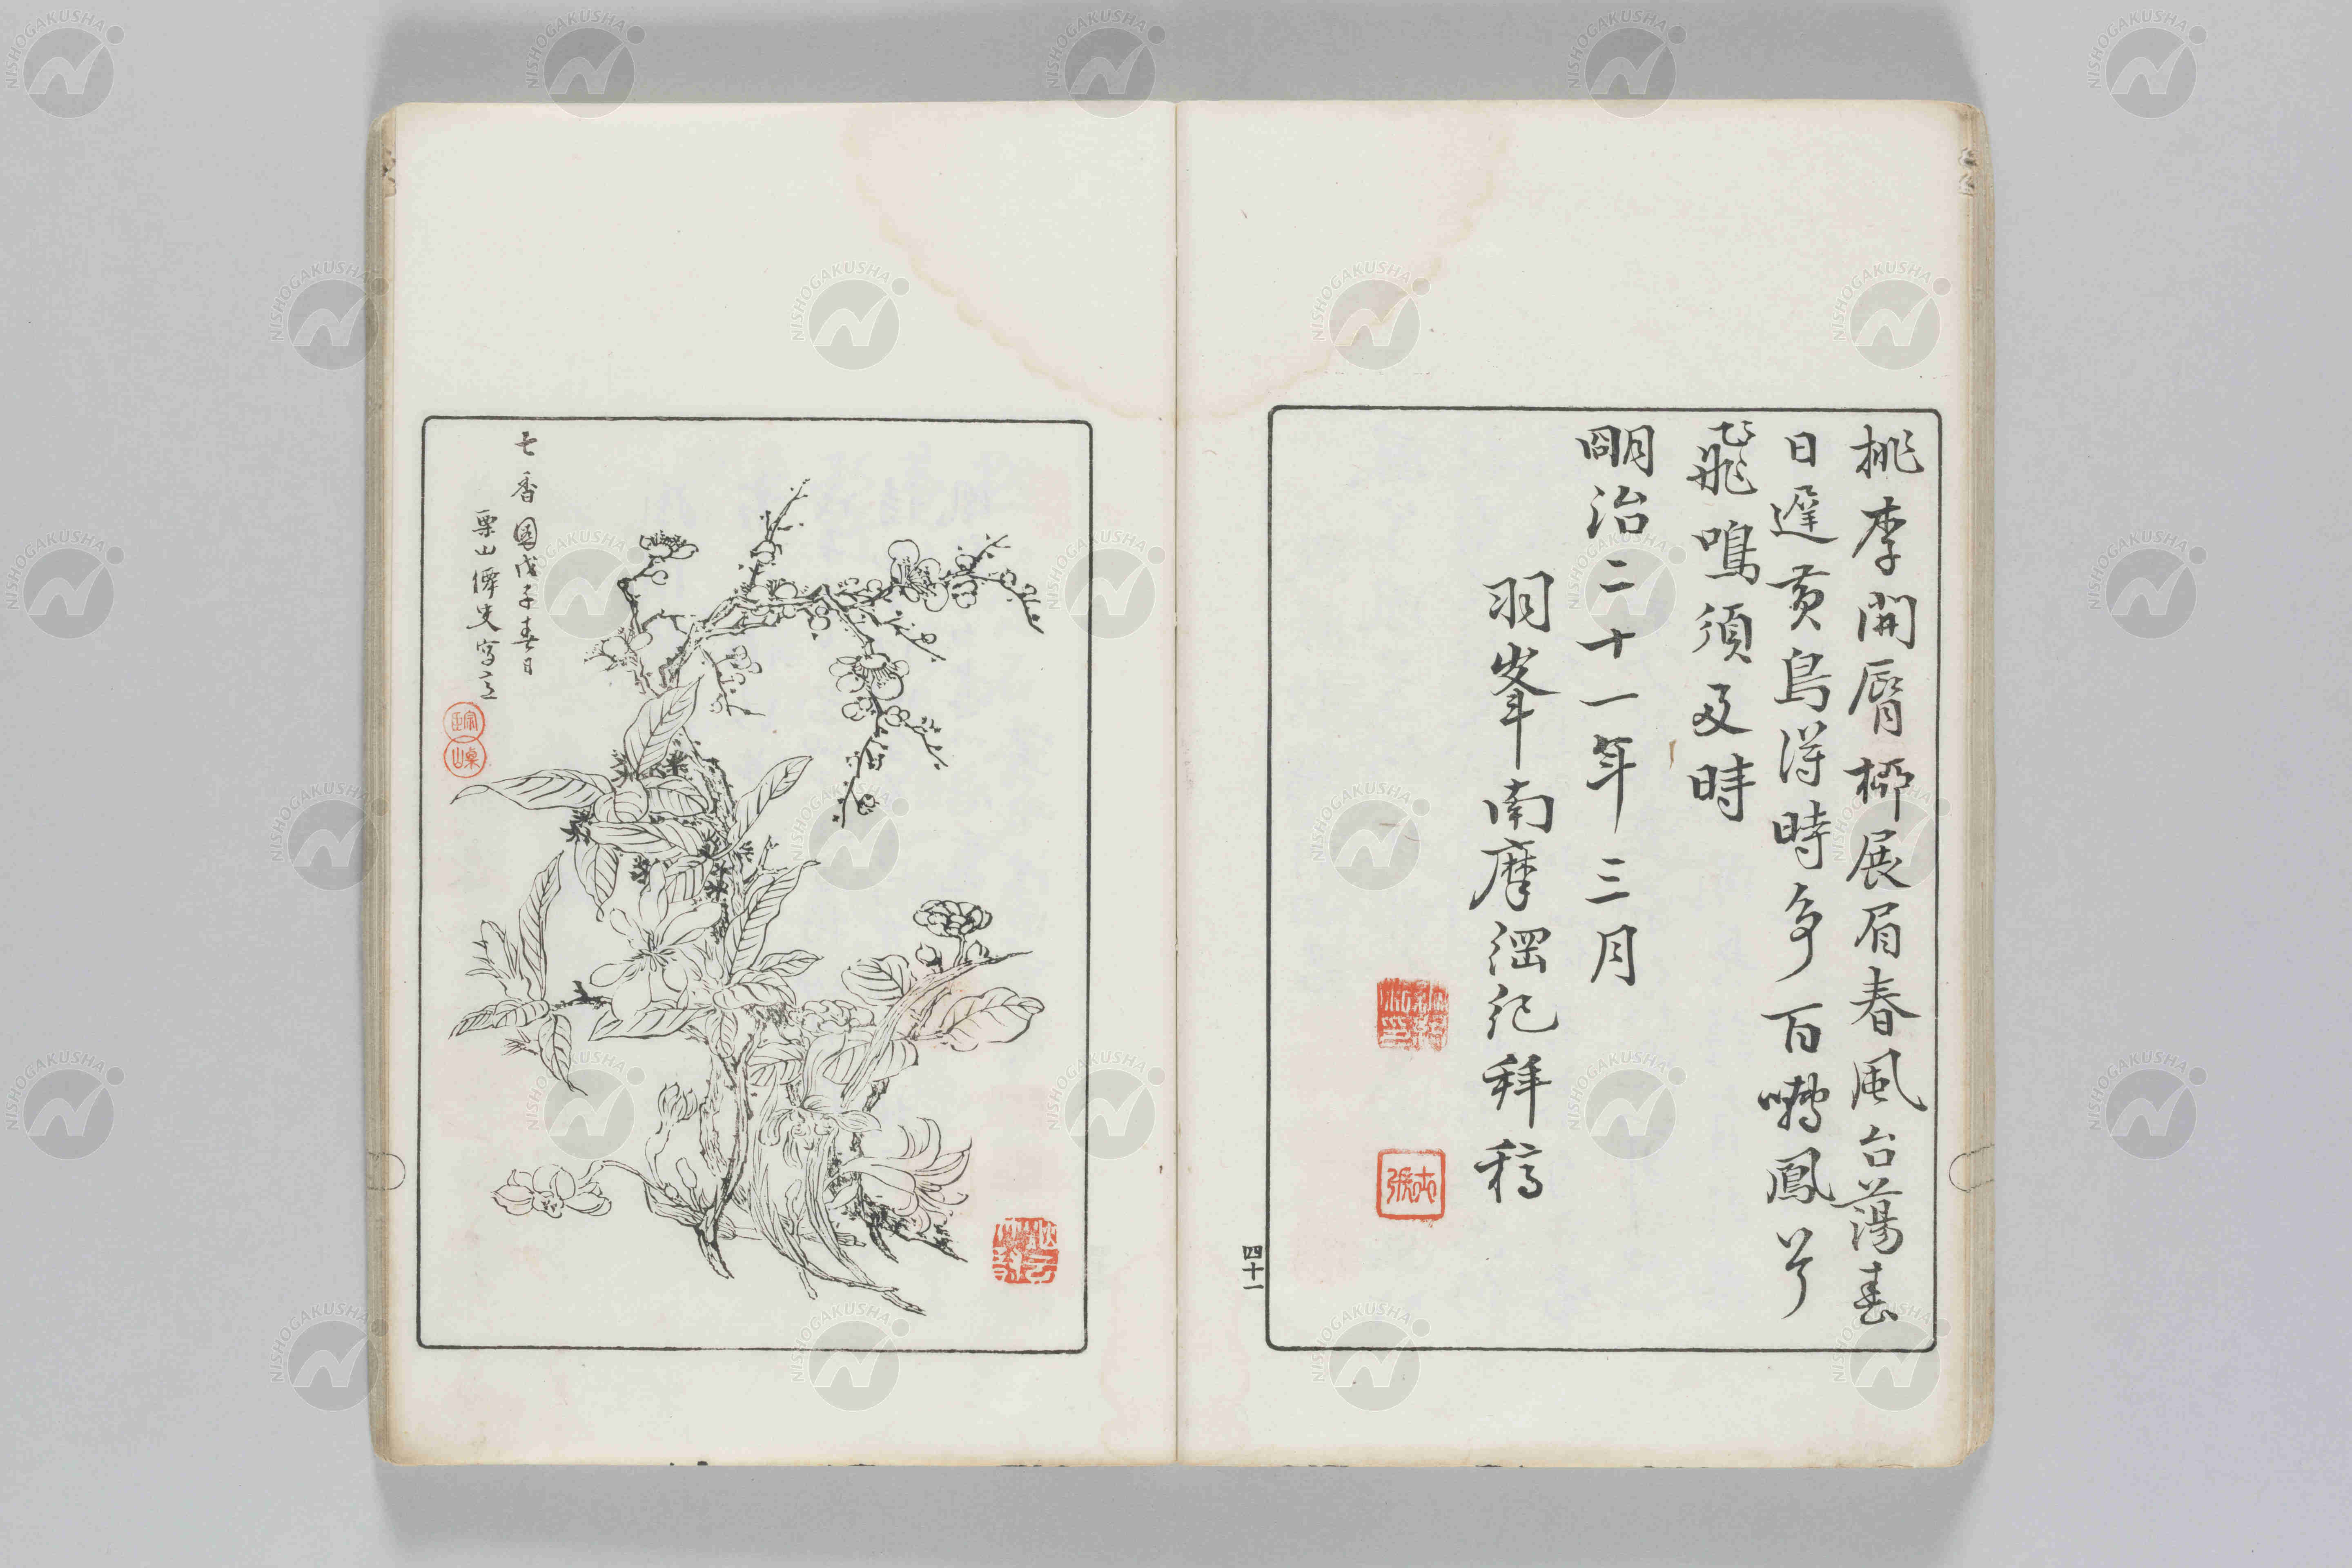 桃李開脣栁展眉春風台蕩春
日遲黄鳥得時争百囀鳳兮
飛鳴須及時
明治二十一年三月
羽峯南摩綱紀拜稿
四十一
七香圖戊子春日
栗山僊史寫意
NISHOGAKUSHA